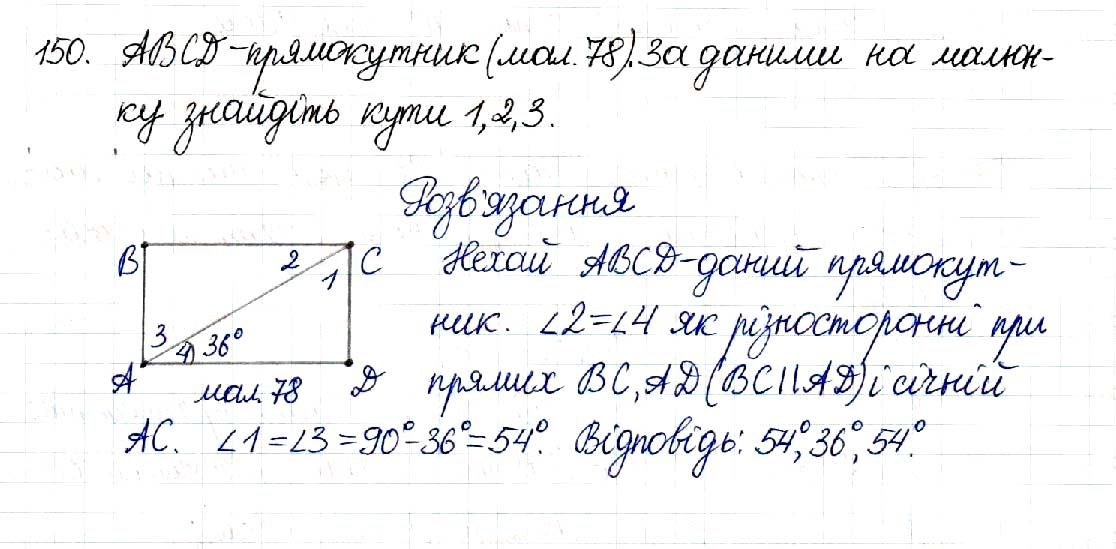 150. ABCD-прямокутник (мал. 78). За даними на малюн-
ку знайдіть кути 1, 2, 3.
Розв'язання
B 2 C
1
3
4 36°
A D
мал. 78
Нехай ABCD-даний прямокут-
ник. ∠2=∠4 як різносторонні при
прямих BC, AD (BC||AD) і січній
AC. ∠1=∠3=90°-36°=54°. Відповідь: 54°, 36°, 54°.